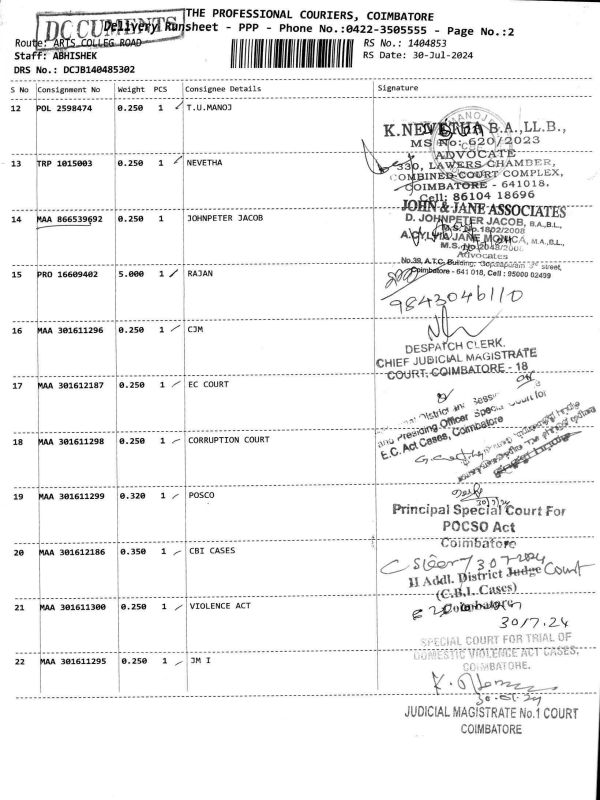 THE PROFESSIONAL COURIERS, COIMBATORE
DOCUMENTS
Delivery Runsheet - PPP - Phone No.:0422-3505555 - Page No.:2
Route: ARTS COLLEG ROAD
RS No.: 1404853
Staff: ABHISHEK
RS Date: 30-Jul-2024
DRS No.: DCJB140485302
S No Consignment No Weight PCS Consignee Details Signature
12 POL 2598474 0.250 1 T.U.MANOJ
K.NEVETHA B.A.,LL.B.,
MS No: 620/2023
ADVOCATE
13 TRP 1015003 0.250 1 NEVETHA
330, LAWERS CHAMBER,
COMBINED COURT COMPLEX,
COIMBATORE - 641018.
Cell: 86104 18696
14 MAA 866539692 0.250 1 JOHNPETER JACOB
JOHN & JANE ASSOCIATES
D. JOHNPETER JACOB, B.A.,B.L.,
M.S. No.1802/2008
M.A.,B.L.,
Advocates
No.39, A.T.C. Building, Gopalapuram 3rd street,
Coimbatore - 641 018, Cell : 95000 02499
15 PRO 16609402 5.000 1 RAJAN
9843046110
16 MAA 301611296 0.250 1 CJM
DESPATCH CLERK.
CHIEF JUDICIAL MAGISTRATE
COURT, COIMBATORE - 18
17 MAA 301612187 0.250 1 EC COURT
District and
and Presiding Officer Special Court for
E.C. Act Cases, Coimbatore
18 MAA 301611298 0.250 1 CORRUPTION COURT
19 MAA 301611299 0.320 1 POSCO
30/7/24
Principal Special Court For
POCSO Act
Coimbatore
20 MAA 301612186 0.350 1 CBI CASES
II Addl. District Judge Court
(C.B.I. Cases)
Coimbatore
21 MAA 301611300 0.250 1 VIOLENCE ACT
30/7.24
SPECIAL COURT FOR TRIAL OF
DOMESTIC VIOLENCE ACT CASES,
COIMBATORE.
22 MAA 301611295 0.250 1 JM I
JUDICIAL MAGISTRATE No.1 COURT
COIMBATORE